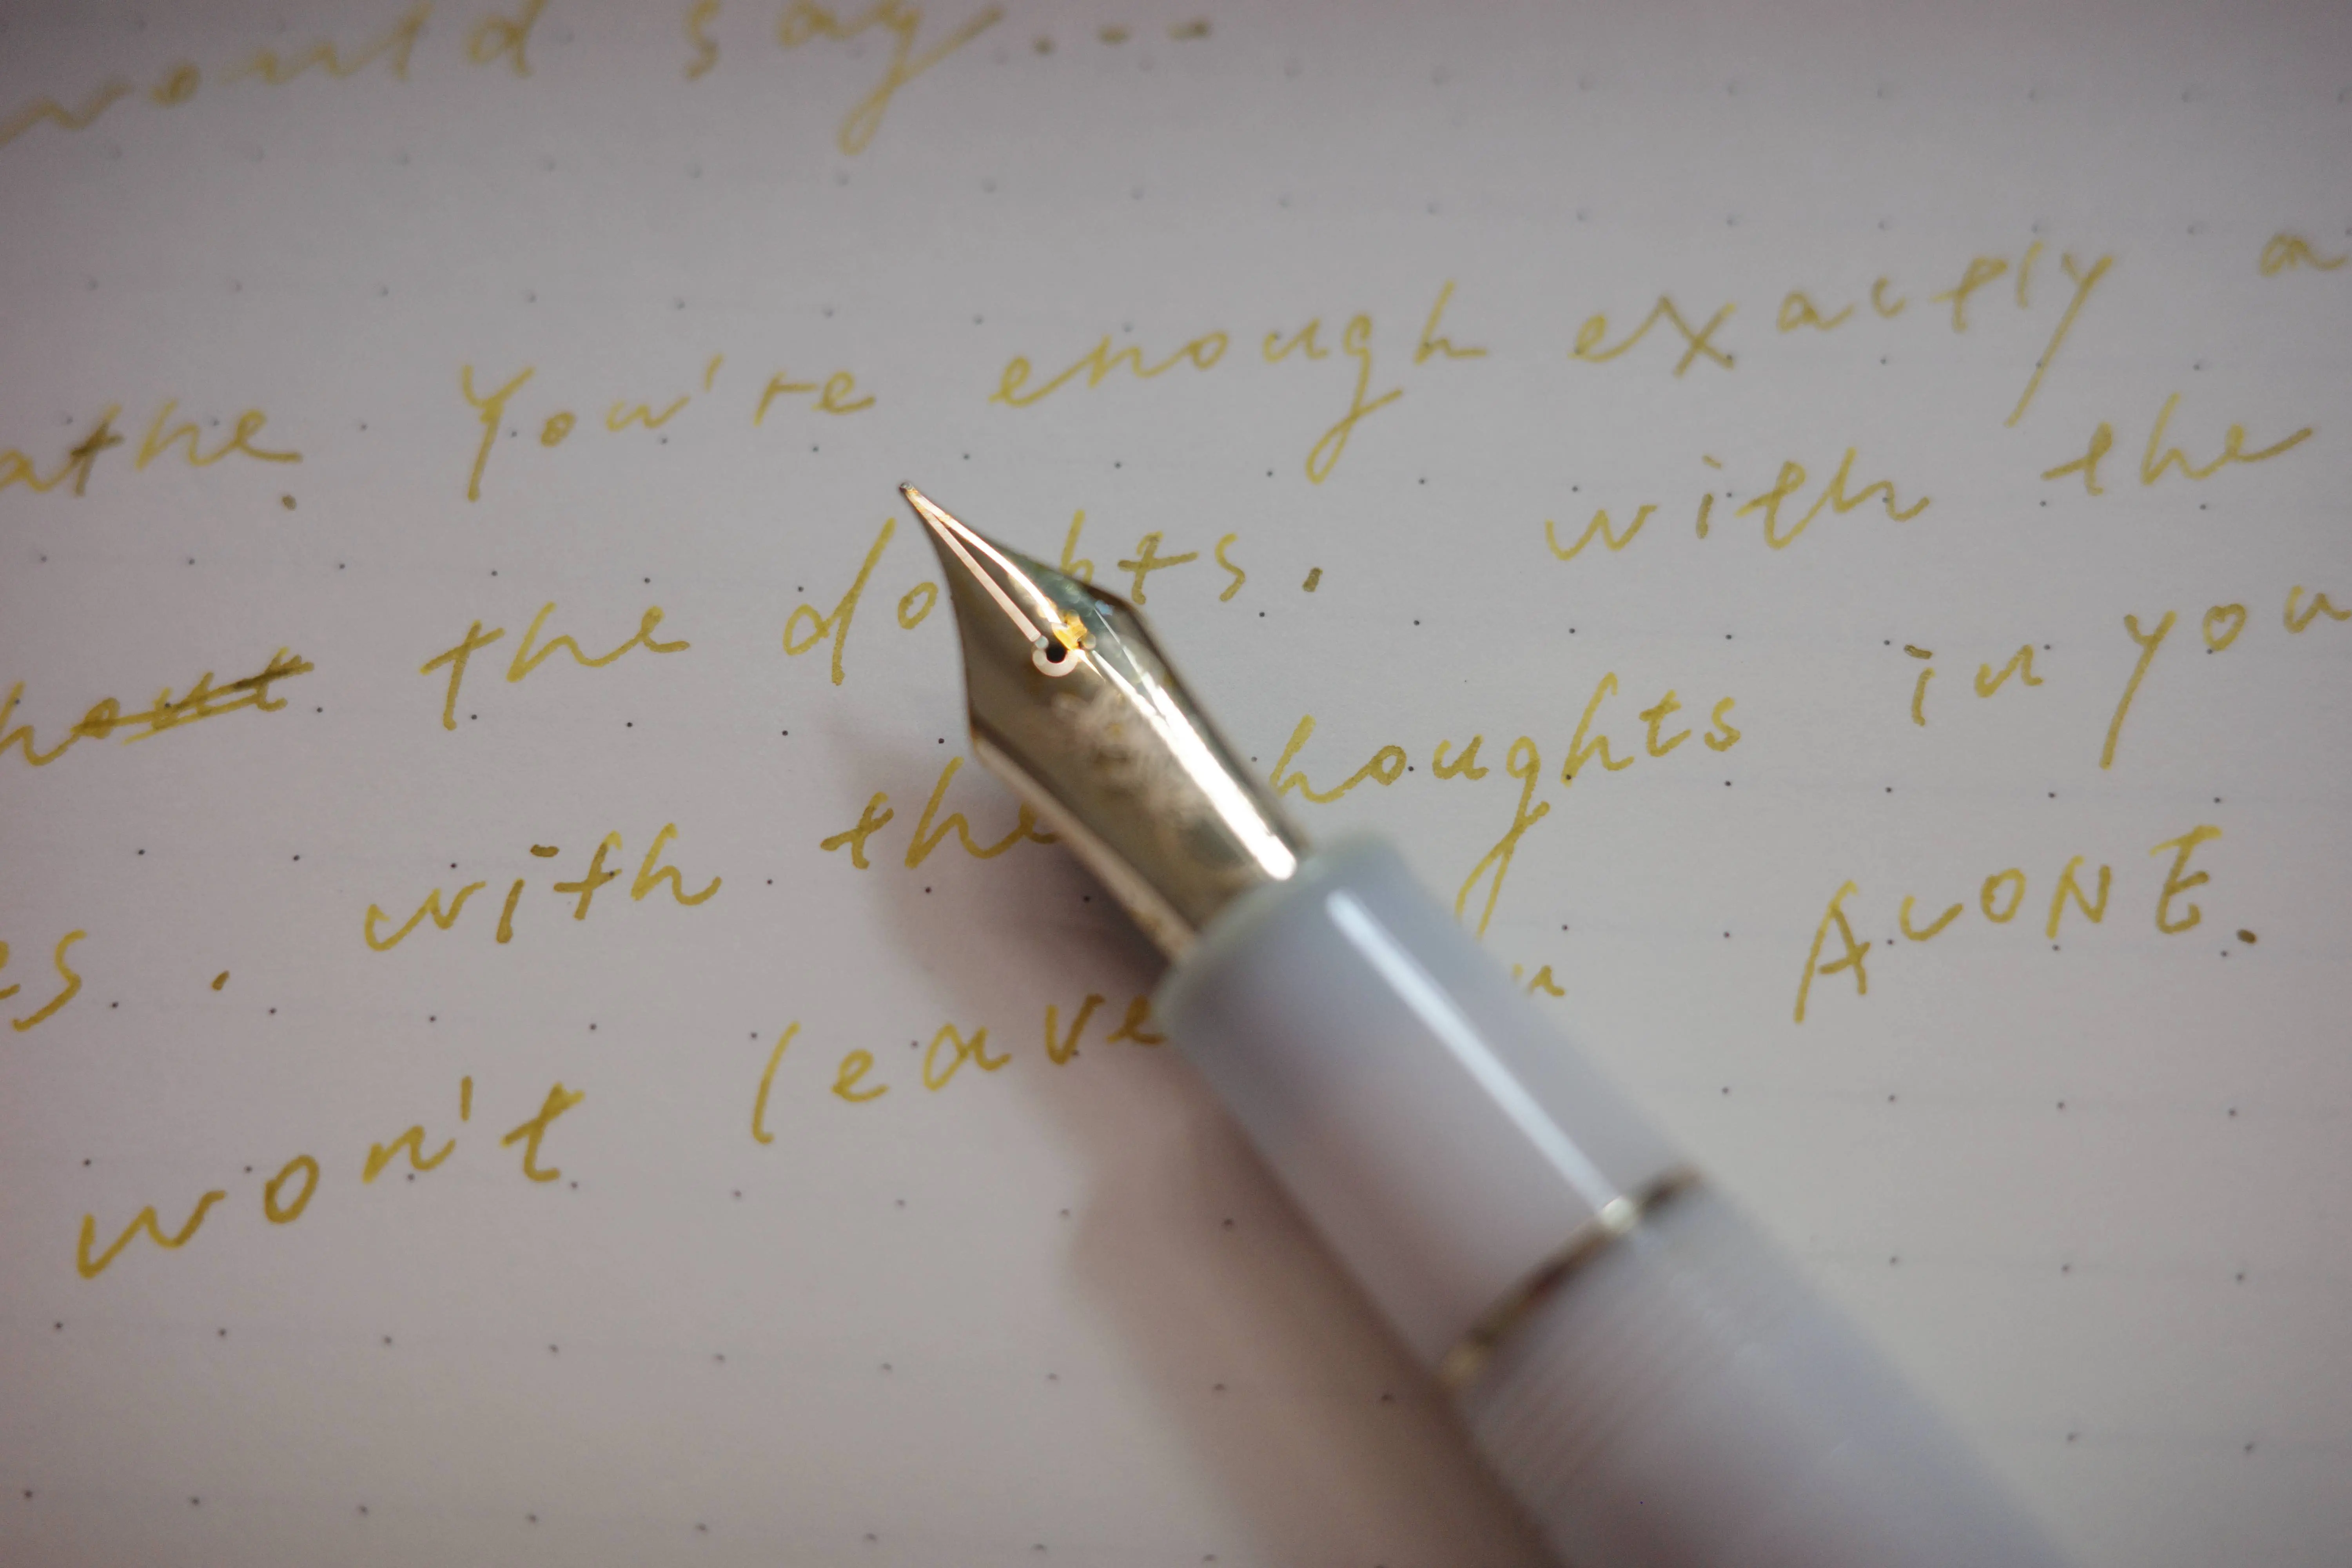 would say...
athe. You're enough exactly a
hout the doubts. with the
es. with the thoughts in you
won't leave ALONE.